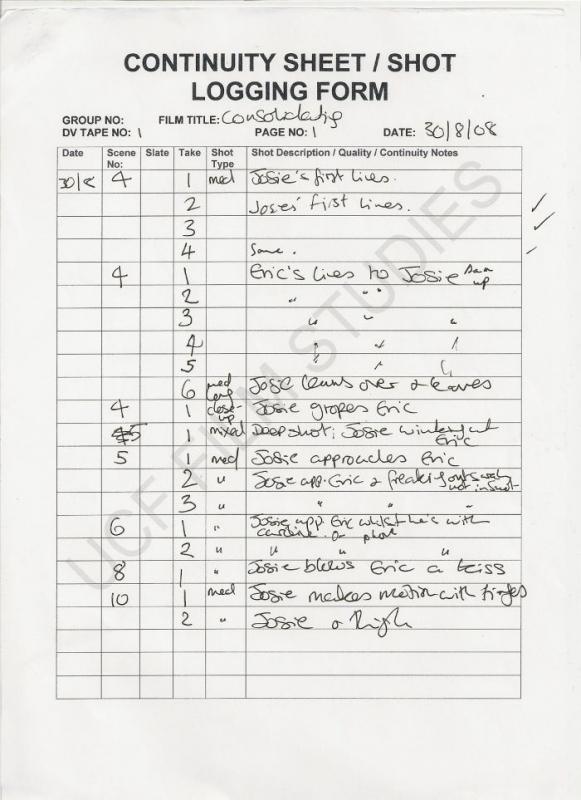 CONTINUITY SHEET / SHOT
LOGGING FORM
GROUP NO: FILM TITLE: Consolidating
DV TAPE NO: 1 PAGE NO: 1 DATE: 30/8/08
Date Scene No: Slate Take Shot Type Shot Description / Quality / Continuity Notes
30/8 4 1 med Josie's first lines.
2 first lines. ✓
3 ✓
4 Same. ✓
4 1 Eric's lines to Josie up
2 " " "
3 " " "
4 " " "
5 " " "
6 med long Josie leans over & leaves
4 1 close-up Josie gropes Eric
5 1 mixed Deep shot; Josie winking at Eric
5 1 med Josie approaches Eric
2 " Josie app. Eric & not in shot
3 " " " "
6 1 " Josie app. Eric whilst he's with
2 " " " " "
8 1 " Josie blows Eric a kiss
10 1 med Josie makes motion with fingers
2 " Josie thigh
UCF FILM STUDIES